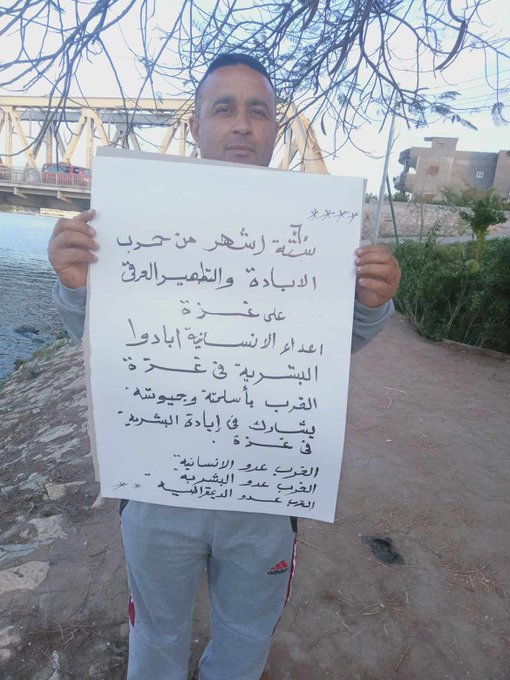 ****
ستة اشهر من حرب
الابادة والتطهير العرقى
على غزة
اعداء الانسانية ابادوا
البشرية فى غزة
الغرب بأسلحتة وجيوشة
يشارك فى إبادة البشرية
فى غزة .
الغرب عدو الانسانية
الغرب عدو البشرية
الغرب عدو الديمقراطية
**
adidas